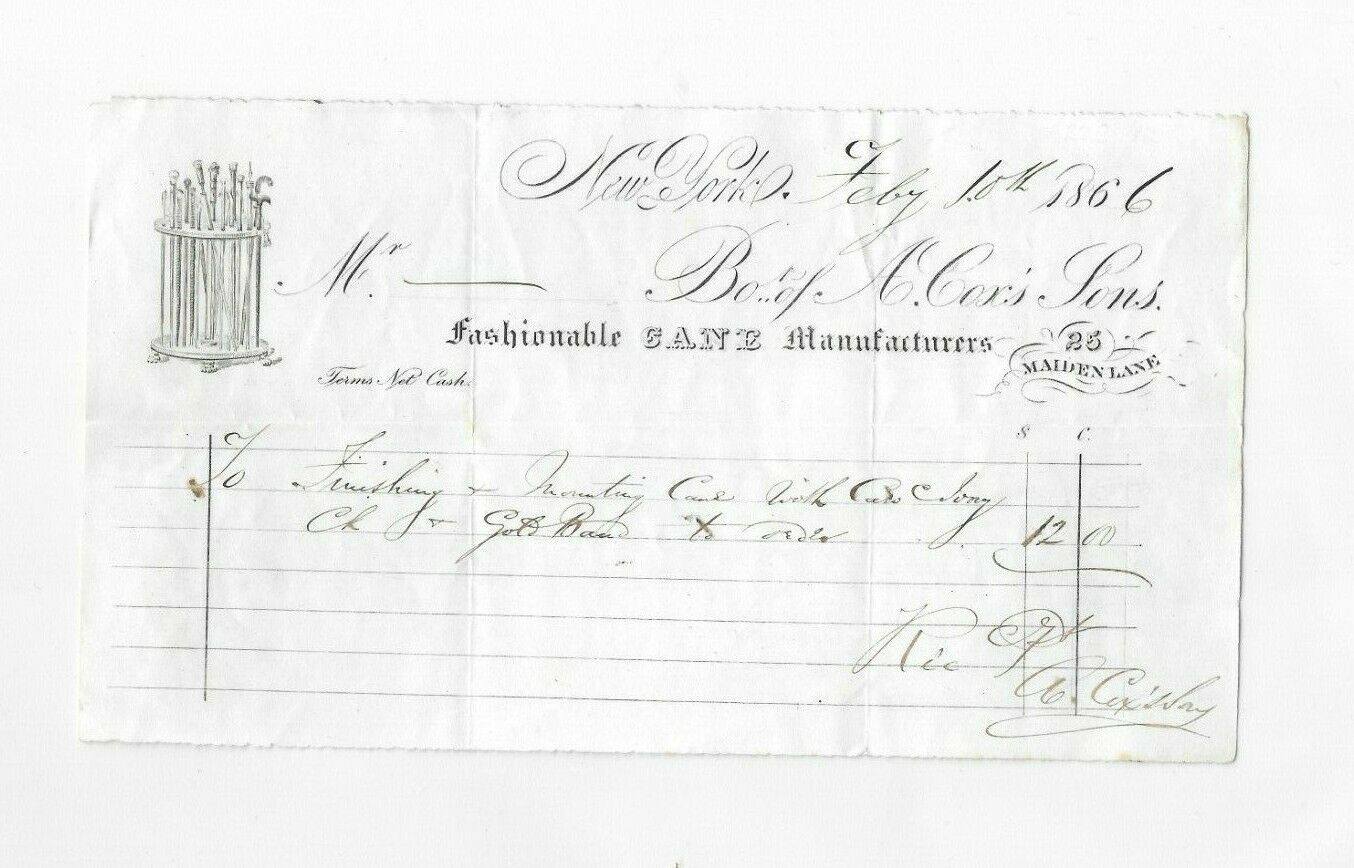 New York. Feby 10th 1866
Mr. Bot. of A. Cox's Sons.
Fashionable CANE Manufacturers 25
MAIDEN LANE
Terms Net Cash.
$ C.
To Finishing & Mounting Cane With Ivory
& Gold Band to order 12 00
Rec Pt
A. Cox's Sons